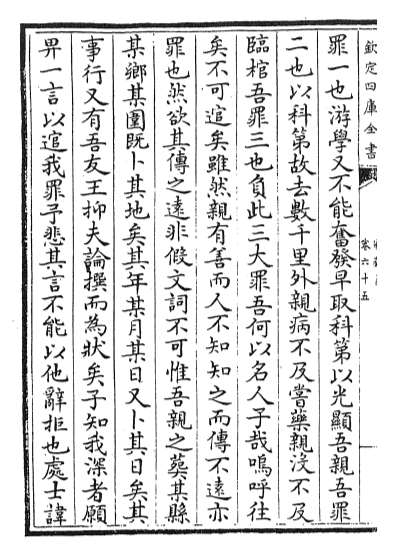 欽定四庫全書
卷六十五
罪一也游學又不能奮發早取科第以光顯吾親吾罪
二也以科第故去數千里外親病不及嘗藥親沒不及
臨棺吾罪三也負此三大罪吾何以名人子哉嗚呼往
矣不可追矣雖然親有善而人不知知之而傳不遠亦
罪也然欲其傳之遠非假文詞不可惟吾親之葬其縣
某鄉某圍既卜其地矣其年某月某日又卜其日矣其
事行又有吾友王抑夫論撰而為狀矣子知我深者願
畀一言以追我罪予悲其言不能以他辭拒也處士諱